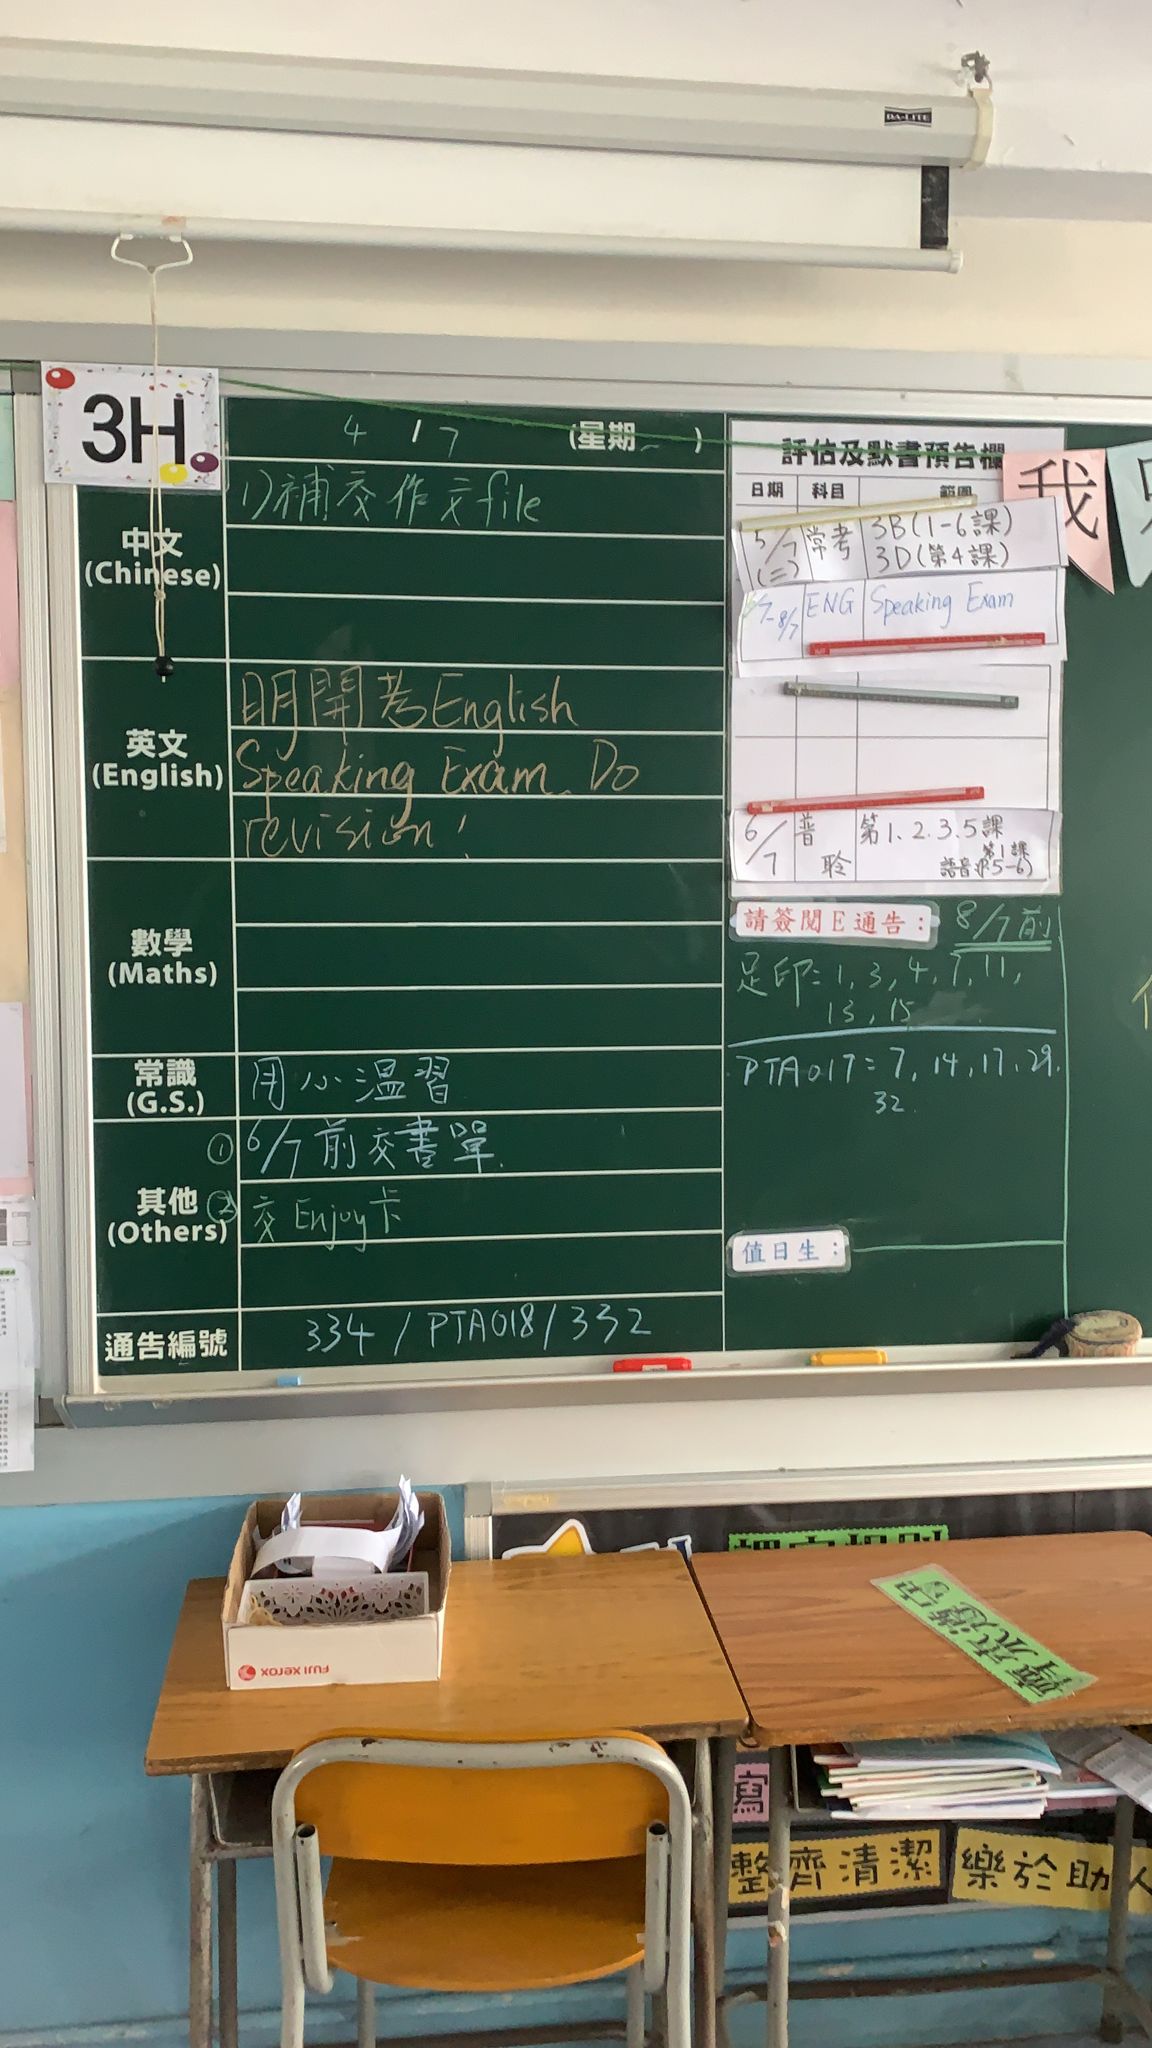 DA-LITE
3H
4 / 7 (星期一)
中文
(Chinese)
1)補交作文file
英文
(English)
明開考English
Speaking Exam. Do
revision!
數學
(Maths)
常識
(G.S.)
用心溫習
其他
(Others)
① 6/7前交書單.
② 交Enjoy卡
通告編號
334 / PTA018 / 332
評估及默書預告欄
日期 科目 範圍
5/7(二) 常考 3B(1-6課)
3D(第4課)
/7-8/7 ENG Speaking Exam
6/7 普聆 第1.2.3.5課
第1課
語音(P.5-6)
請簽閱E通告: 8/7前
足印: 1, 3, 4, 7, 11,
13, 15
PTA017: 7, 14, 17, 29.
32.
值日生:
我
FUJI XEROX
寫
整齊清潔
樂於助人